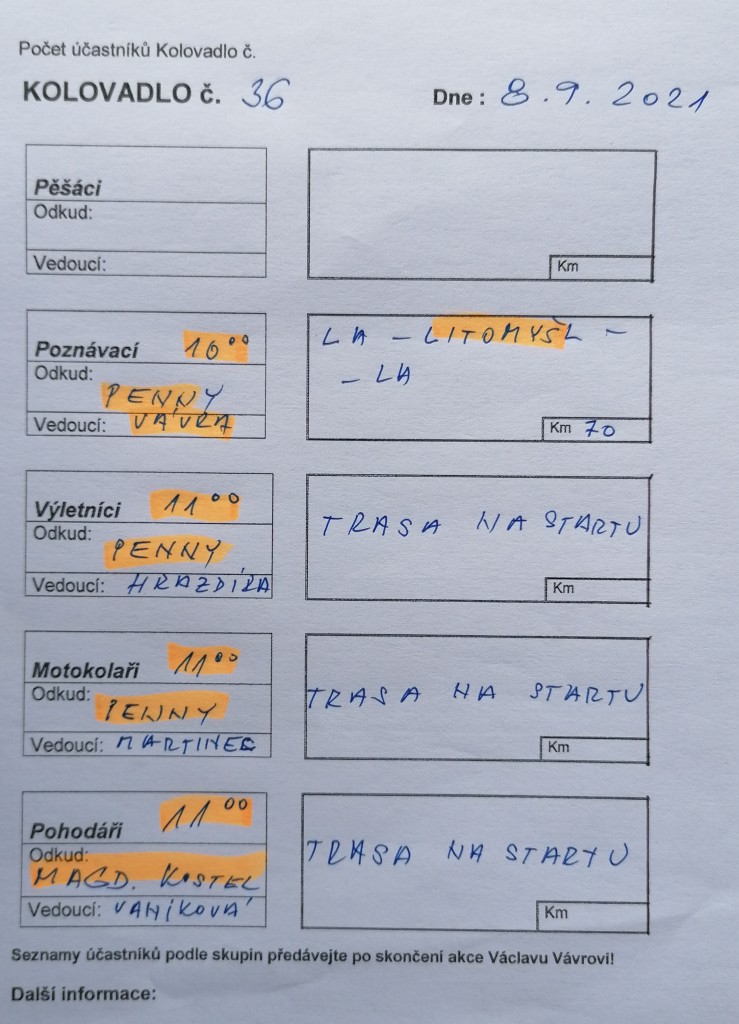 Počet účastníků Kolovadlo č.
KOLOVADLO č. 36 Dne : 8.9.2021
Pěšáci
Odkud:
Vedoucí:
Km
Poznávací 10⁰⁰
Odkud:
PENNY
Vedoucí: VÁVRA
LA – LITOMYŠL –
– LA
Km 70
Výletníci 11⁰⁰
Odkud:
PENNY
Vedoucí: HRAZDÍRA
TRASA NA STARTU
Km
Motokolaři 11⁰⁰
Odkud:
PENNY
Vedoucí: MARTINEC
TRASA NA STARTU
Km
Pohodáři 11⁰⁰
Odkud:
MAGD. KOSTEL
Vedoucí: VANÍKOVÁ
TRASA NA STARTU
Km
Seznamy účastníků podle skupin předávejte po skončení akce Václavu Vávrovi!
Další informace: